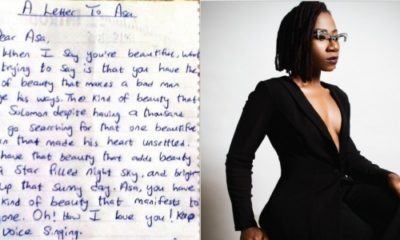 A Letter To Asa
Dear Asa,
When I say you're beautiful, what
trying to say is that you have the
of beauty that makes a bad man
his ways. The kind of beauty that
Solomon despite having a thousand
go searching for that one beautiful
that made his heart unsettled.
have that beauty that adds beauty
a star filled night sky, and bright
up that sunny day. Asa, you have
kind of beauty that manifests to
one. Oh! How I love you! Keep
voice singing.